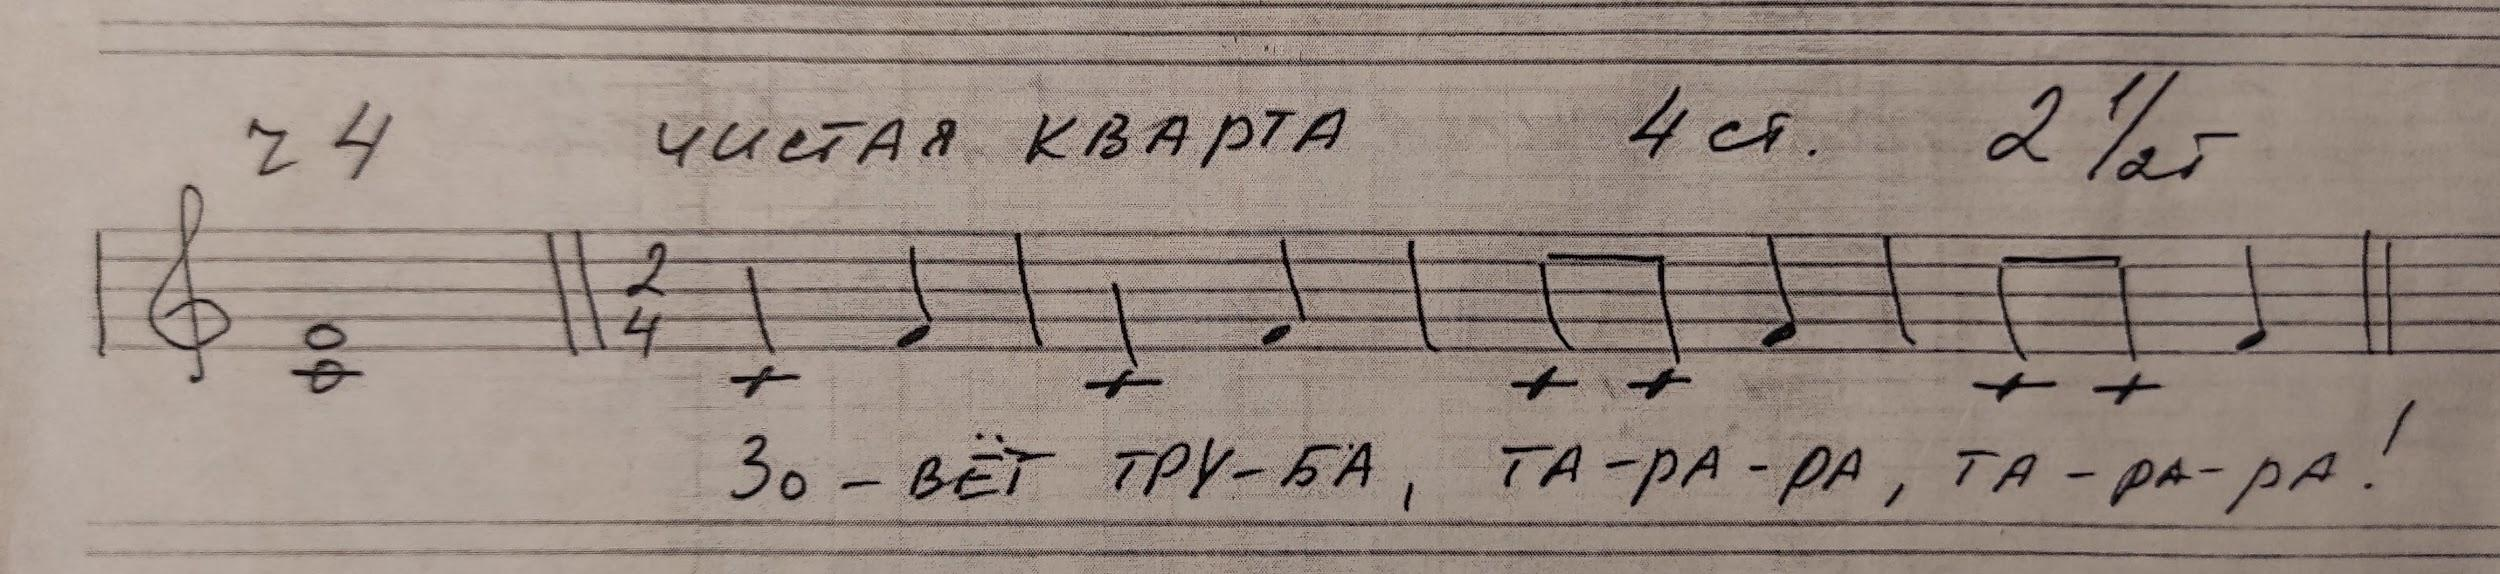 ч 4 ЧИСТАЯ КВАРТА 4 ст. 2 1/2т
2
4
Зо - ВЁТ ТРУ-БА, ТА-РА-РА, ТА-РА-РА!